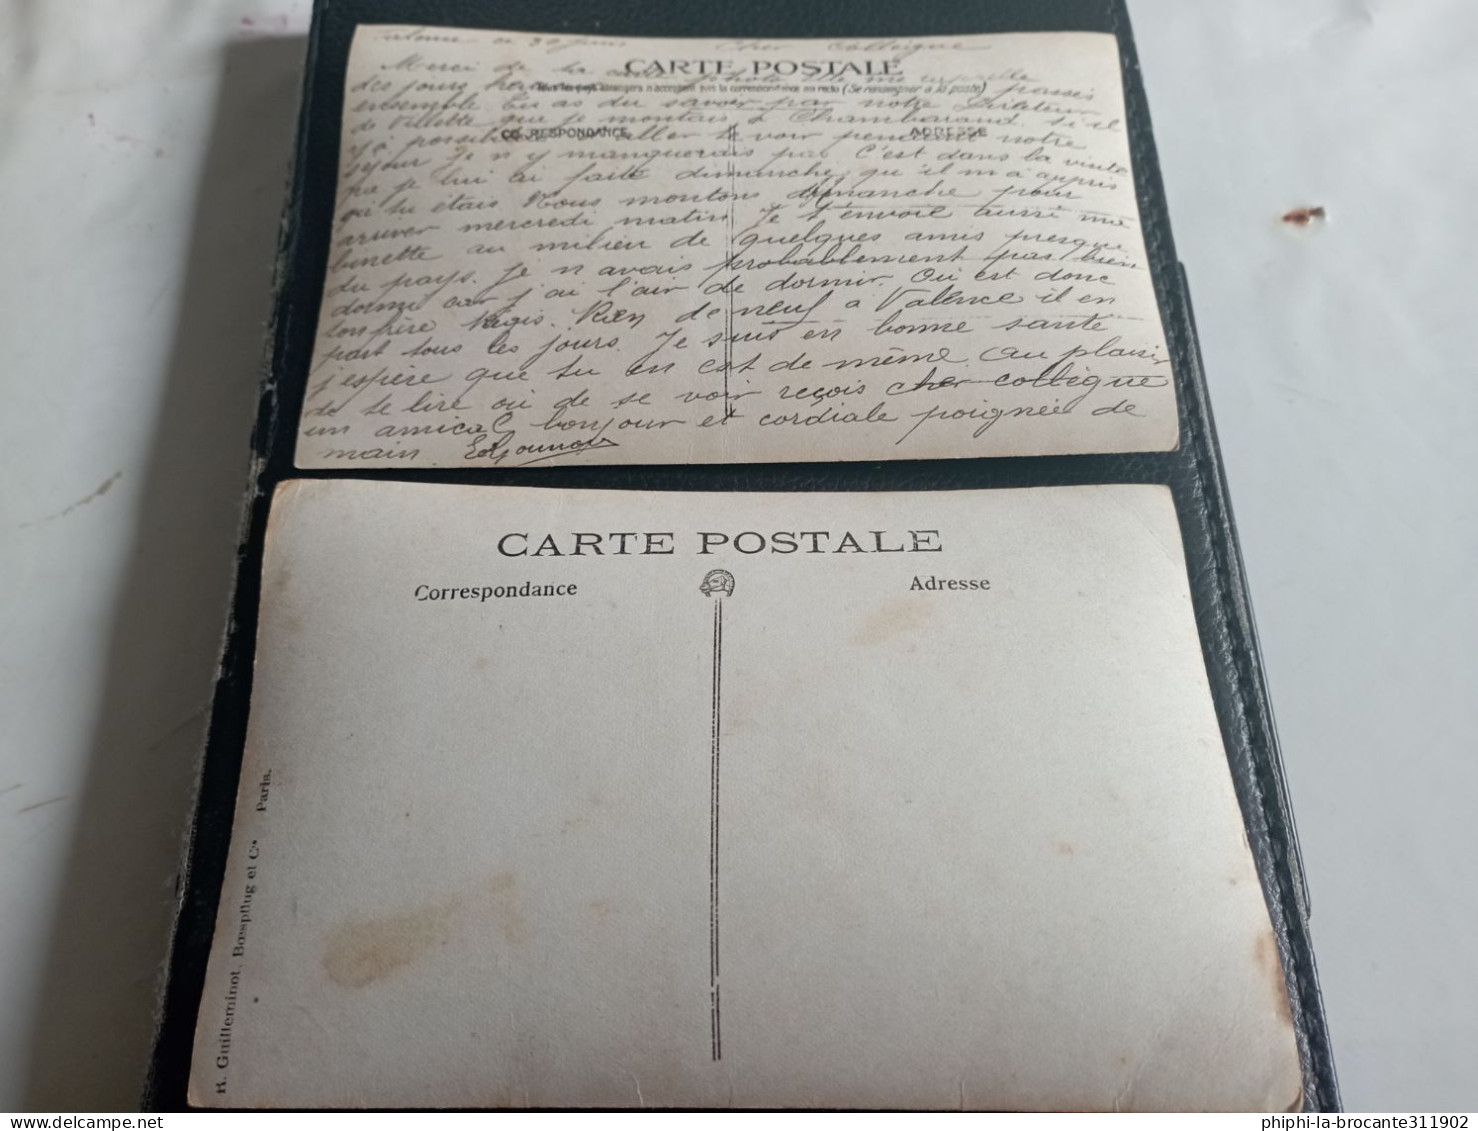 Valence ce 30 juin Cher Collègue
CARTE POSTALE
Merci de ta carte photo elle me rappelle
Tous les pays étrangers n'acceptent pas la correspondance au recto (Se renseigner à la poste)
des jours passés
ensemble. Tu as du savoir par notre Directeur
de que je montais à Chambarand. Si il
CORRESPONDANCE
ADRESSE
y a possibilité d'aller te voir pendant notre
séjour je n'y manquerais pas. C'est dans la visite
que je lui ai faite dimanche qu'il m'a appris
où tu étais. Nous montons dimanche pour
arriver mercredi matin. Je t'envoie aussi ma
binette au milieu de quelques amis presque
du pays. Je n'avais probablement pas bien
dormi car j'ai l'air de dormir. Où est donc
ton père Régis. Rien de neuf à Valence il en
part tous les jours. Je suis en bonne santé
j'espère que tu en est de même. Au plaisir
de te lire ou de se voir reçois cher collègue
un amical bonjour et cordiale poignée de
main.
CARTE POSTALE
Correspondance
Adresse
R. Guilleminot, Bœspflug et Cie Paris.
phiphi-la-brocante311902
delcampe.net